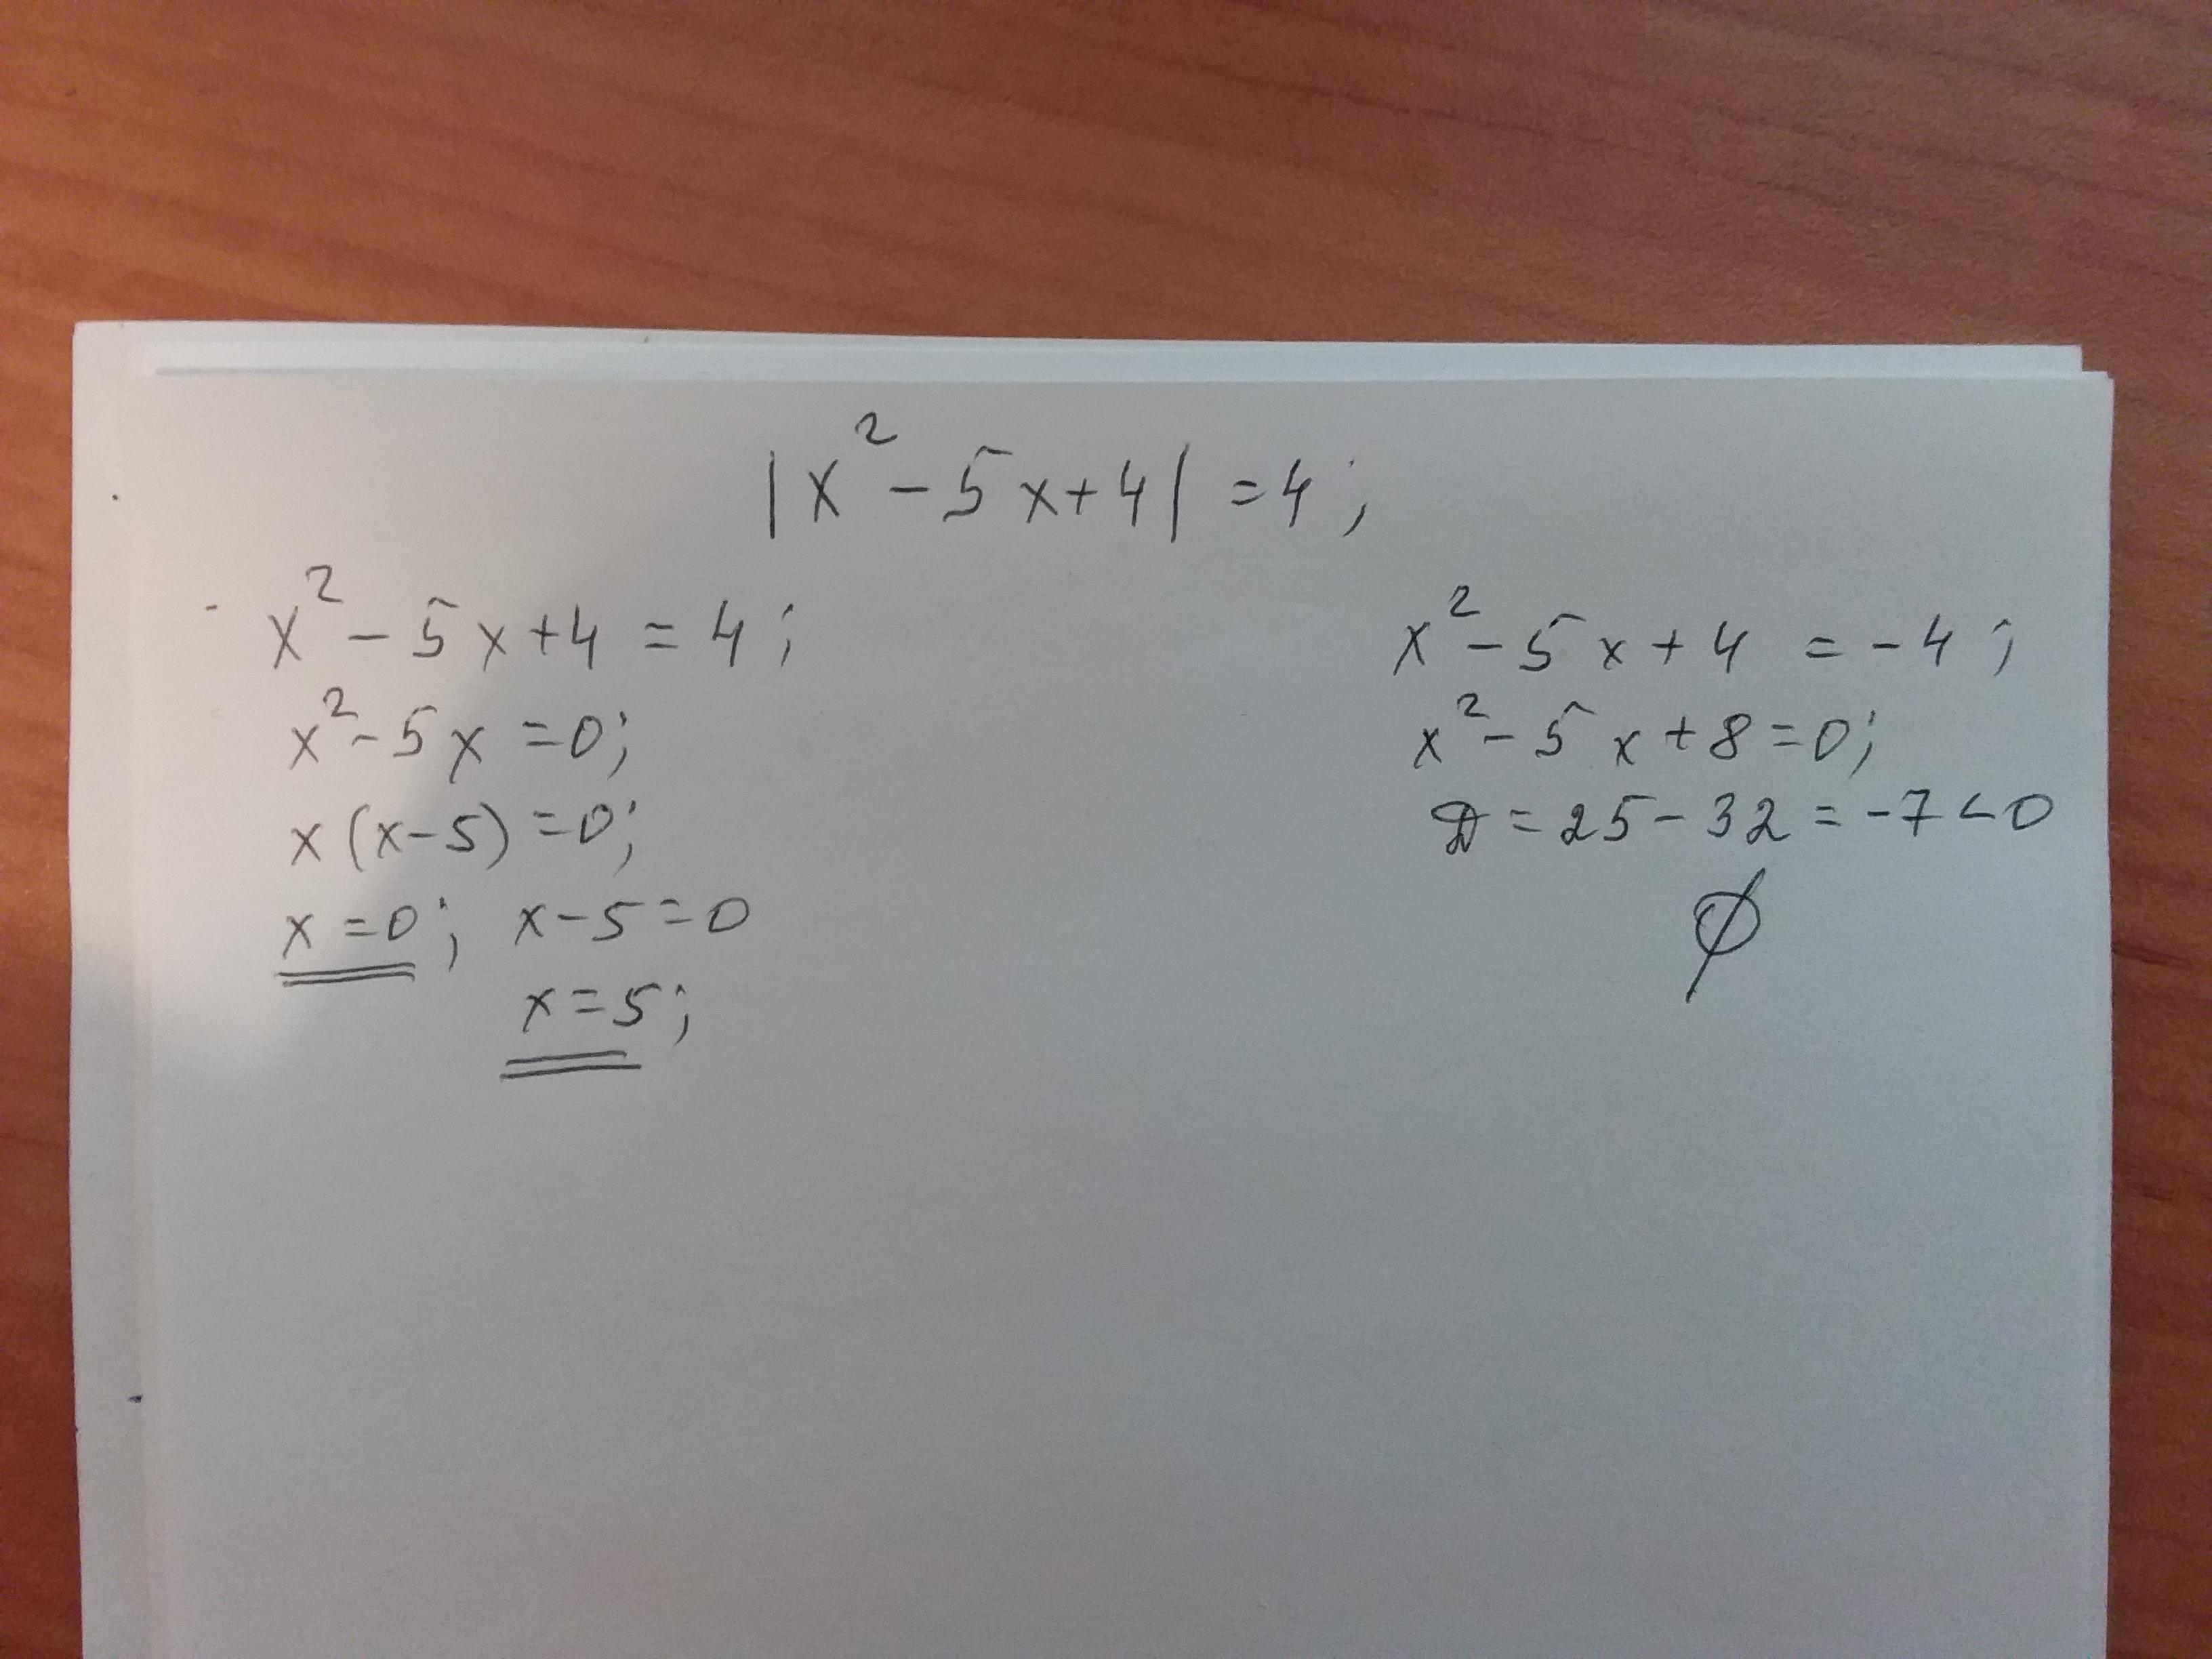 |x² - 5x + 4| = 4;
x² - 5x + 4 = 4;
x² - 5x = 0;
x(x - 5) = 0;
x = 0; x - 5 = 0
x = 5;
x² - 5x + 4 = -4;
x² - 5x + 8 = 0;
D = 25 - 32 = -7 < 0
∅